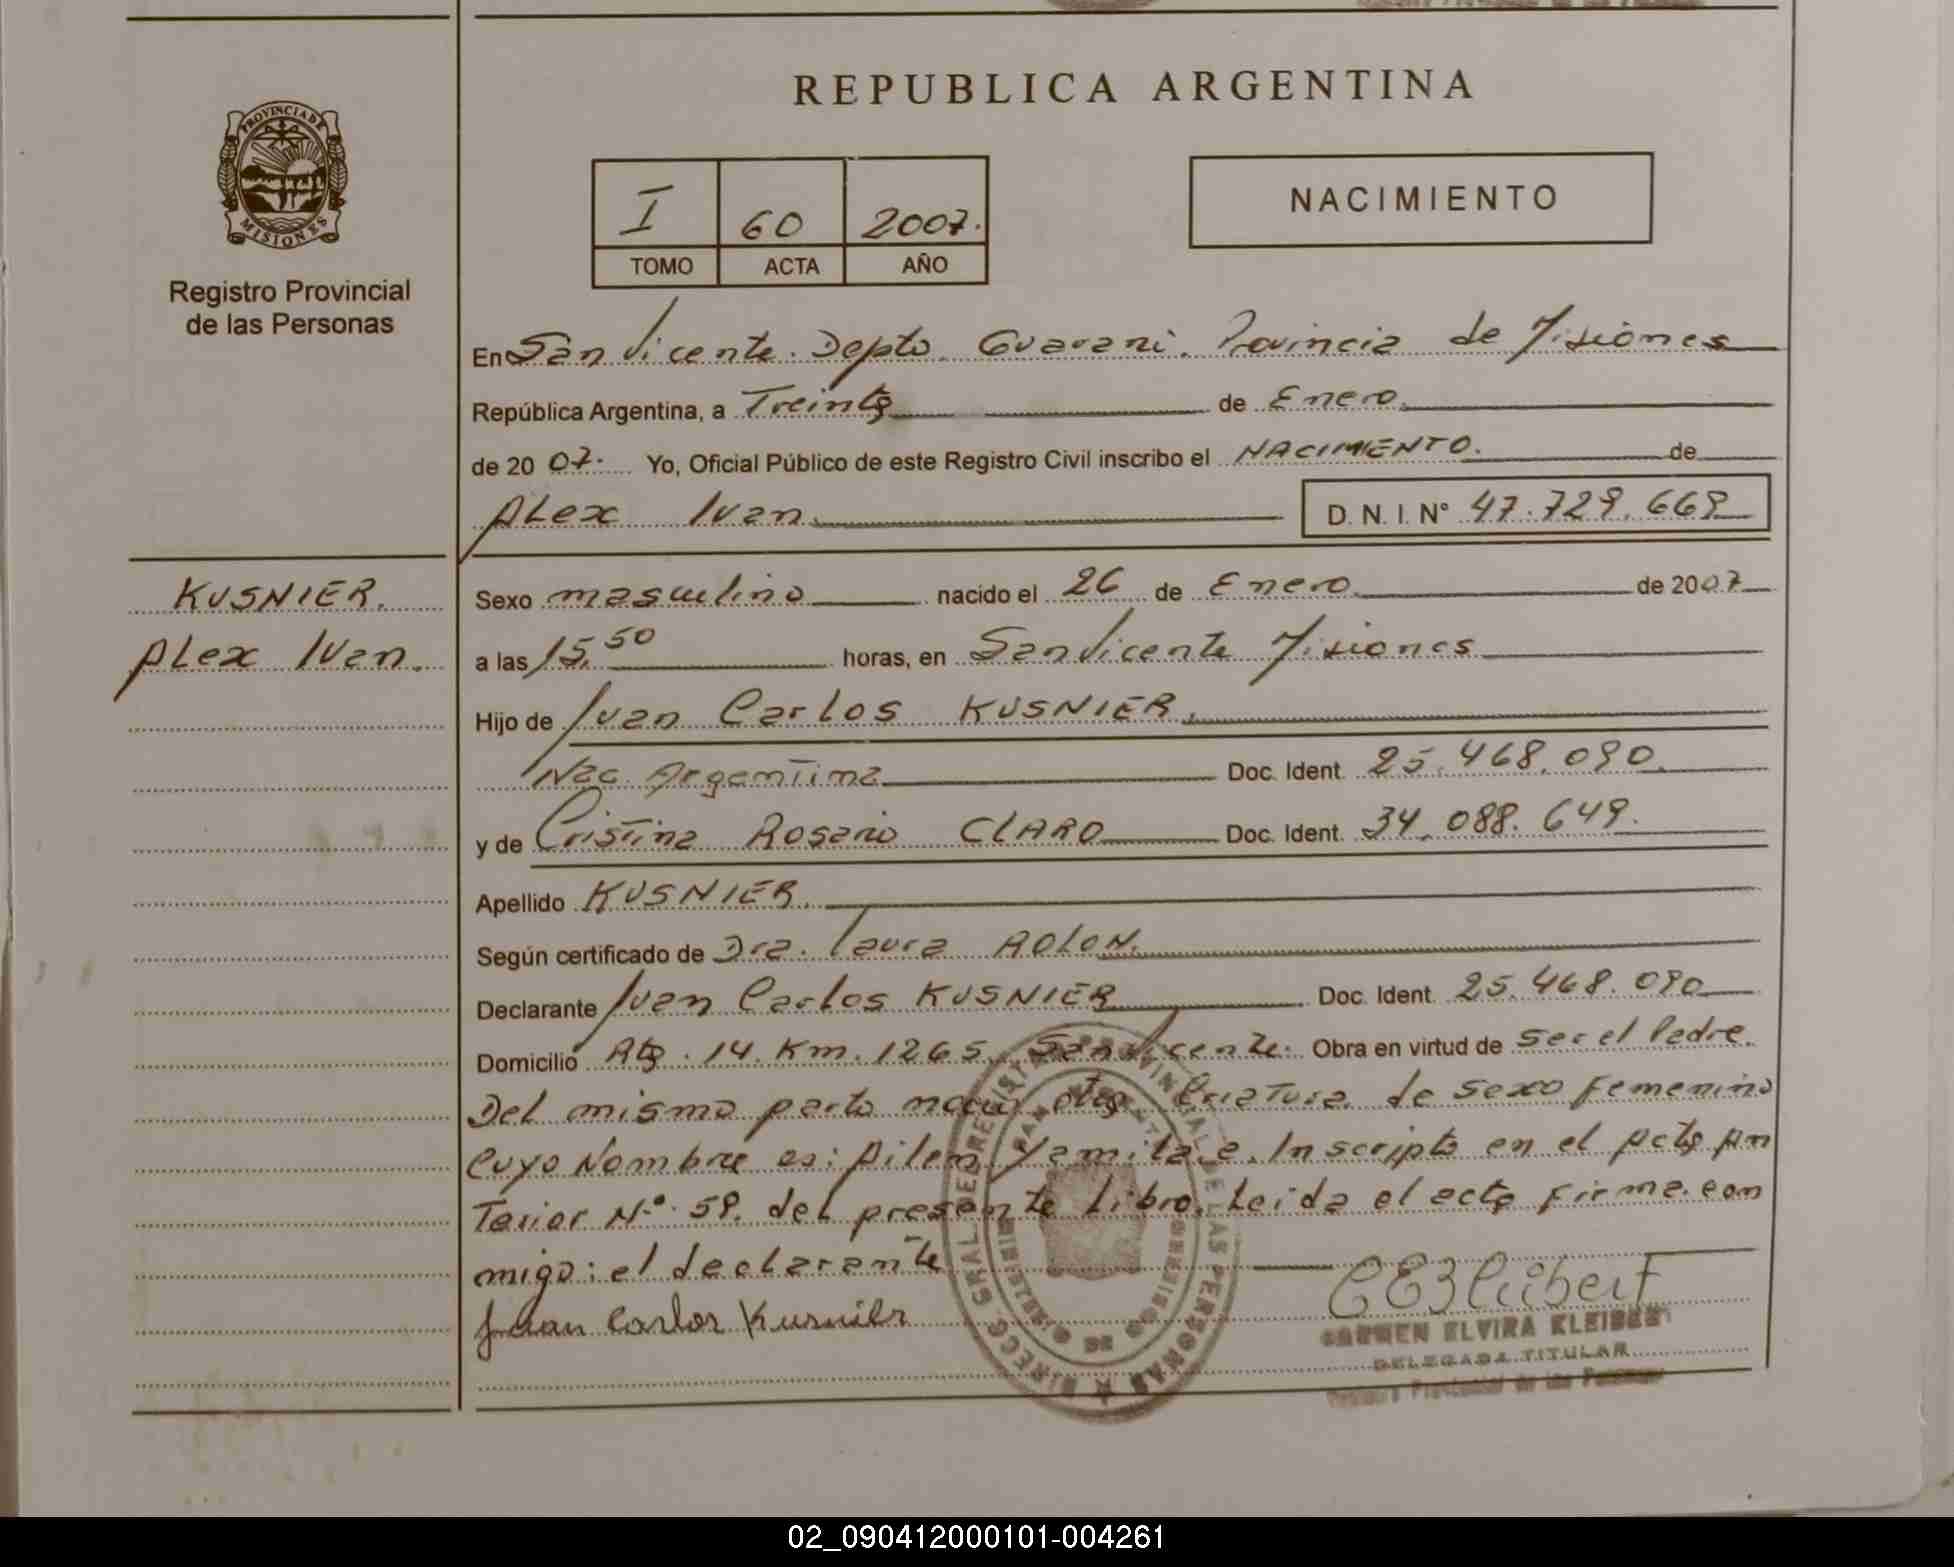 REPUBLICA ARGENTINA
PROVINCIA DE MISIONES
Registro Provincial
de las Personas
I 60 2007.
TOMO ACTA AÑO
NACIMIENTO
En San Vicente. Depto. Guarani. Provincia de Misiones
República Argentina, a Treinta de Enero.
de 20 07. Yo, Oficial Público de este Registro Civil inscribo el NACIMIENTO. de
Alex Ivan. D. N. I. N° 47.729.669
KUSNIER.
Alex Ivan.
Sexo masculino nacido el 26 de Enero. de 2007
a las 15,50 horas, en San Vicente Misiones
Hijo de Ivan Carlos KUSNIER.
Nac. Argentina Doc. Ident. 25.468.090.
y de Cristina Rosario CLARO Doc. Ident. 34.088.649.
Apellido KUSNIER.
Según certificado de Dra. Laura ROLON.
Declarante Ivan Carlos KUSNIER Doc. Ident. 25.468.090
Domicilio Rta. 14. Km. 1265. San Vicente. Obra en virtud de Ser el Padre.
Del mismo parto nacio otra Criatura de sexo Femenino
Cuyo Nombre es: Ailen Yamila. Inscripta en el Acta An
Terior N°. 59. del presente Libro. Leida el acta Firma con
migo: el declarante
Juan Carlos Kusnier
CARMEN ELVIRA KLEIBER
DELEGADA TITULAR
Registro Provincial de las Personas
DIRECC. GRAL. DE REGISTRO PROVINCIAL DE LAS PERSONAS
02_090412000101-004261